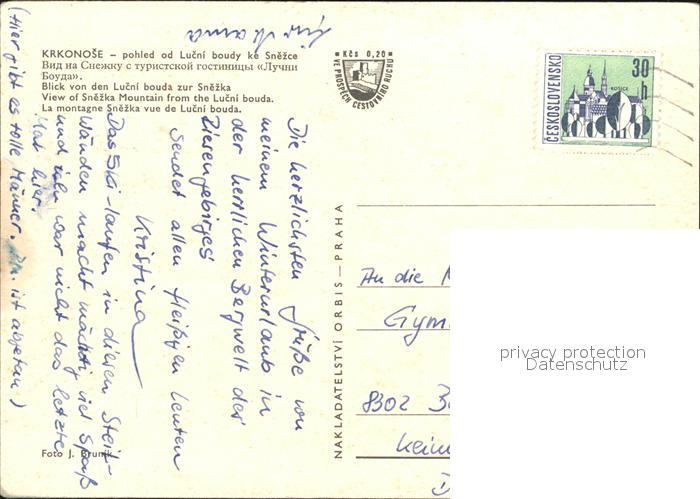 für Mama
KRKONOŠE – pohled od Luční boudy ke Sněžce
Вид на Снежку с туристской гостиницы «Лучни
Боуда».
Blick von den Luční bouda zur Sněžka
View of Sněžka Mountain from the Luční bouda.
La montagne Sněžka vue de Luční bouda.
KČS 0,20
VE PROSPĚCH CESTOVNÍHO RUCHU
ČESKOSLOVENSKO
30 h
KOŠICE
Die herzlichsten Grüße von
meinem Winterurlaub in
der herrlichen Bergwelt des
Riesengebirges
sendet allen fleißigen Leuten
Kristina
Das Ski-laufen in diesen Steil-
Wänden macht mächtig viel Spaß
und war nicht das letzte
Mal hier.
(Hier gibt es tolle Männer. ist abgetan!)
NAKLADATELSTVÍ ORBIS – PRAHA
An die
Gym
8302
Foto J. Bruník
privacy protection
Datenschutz